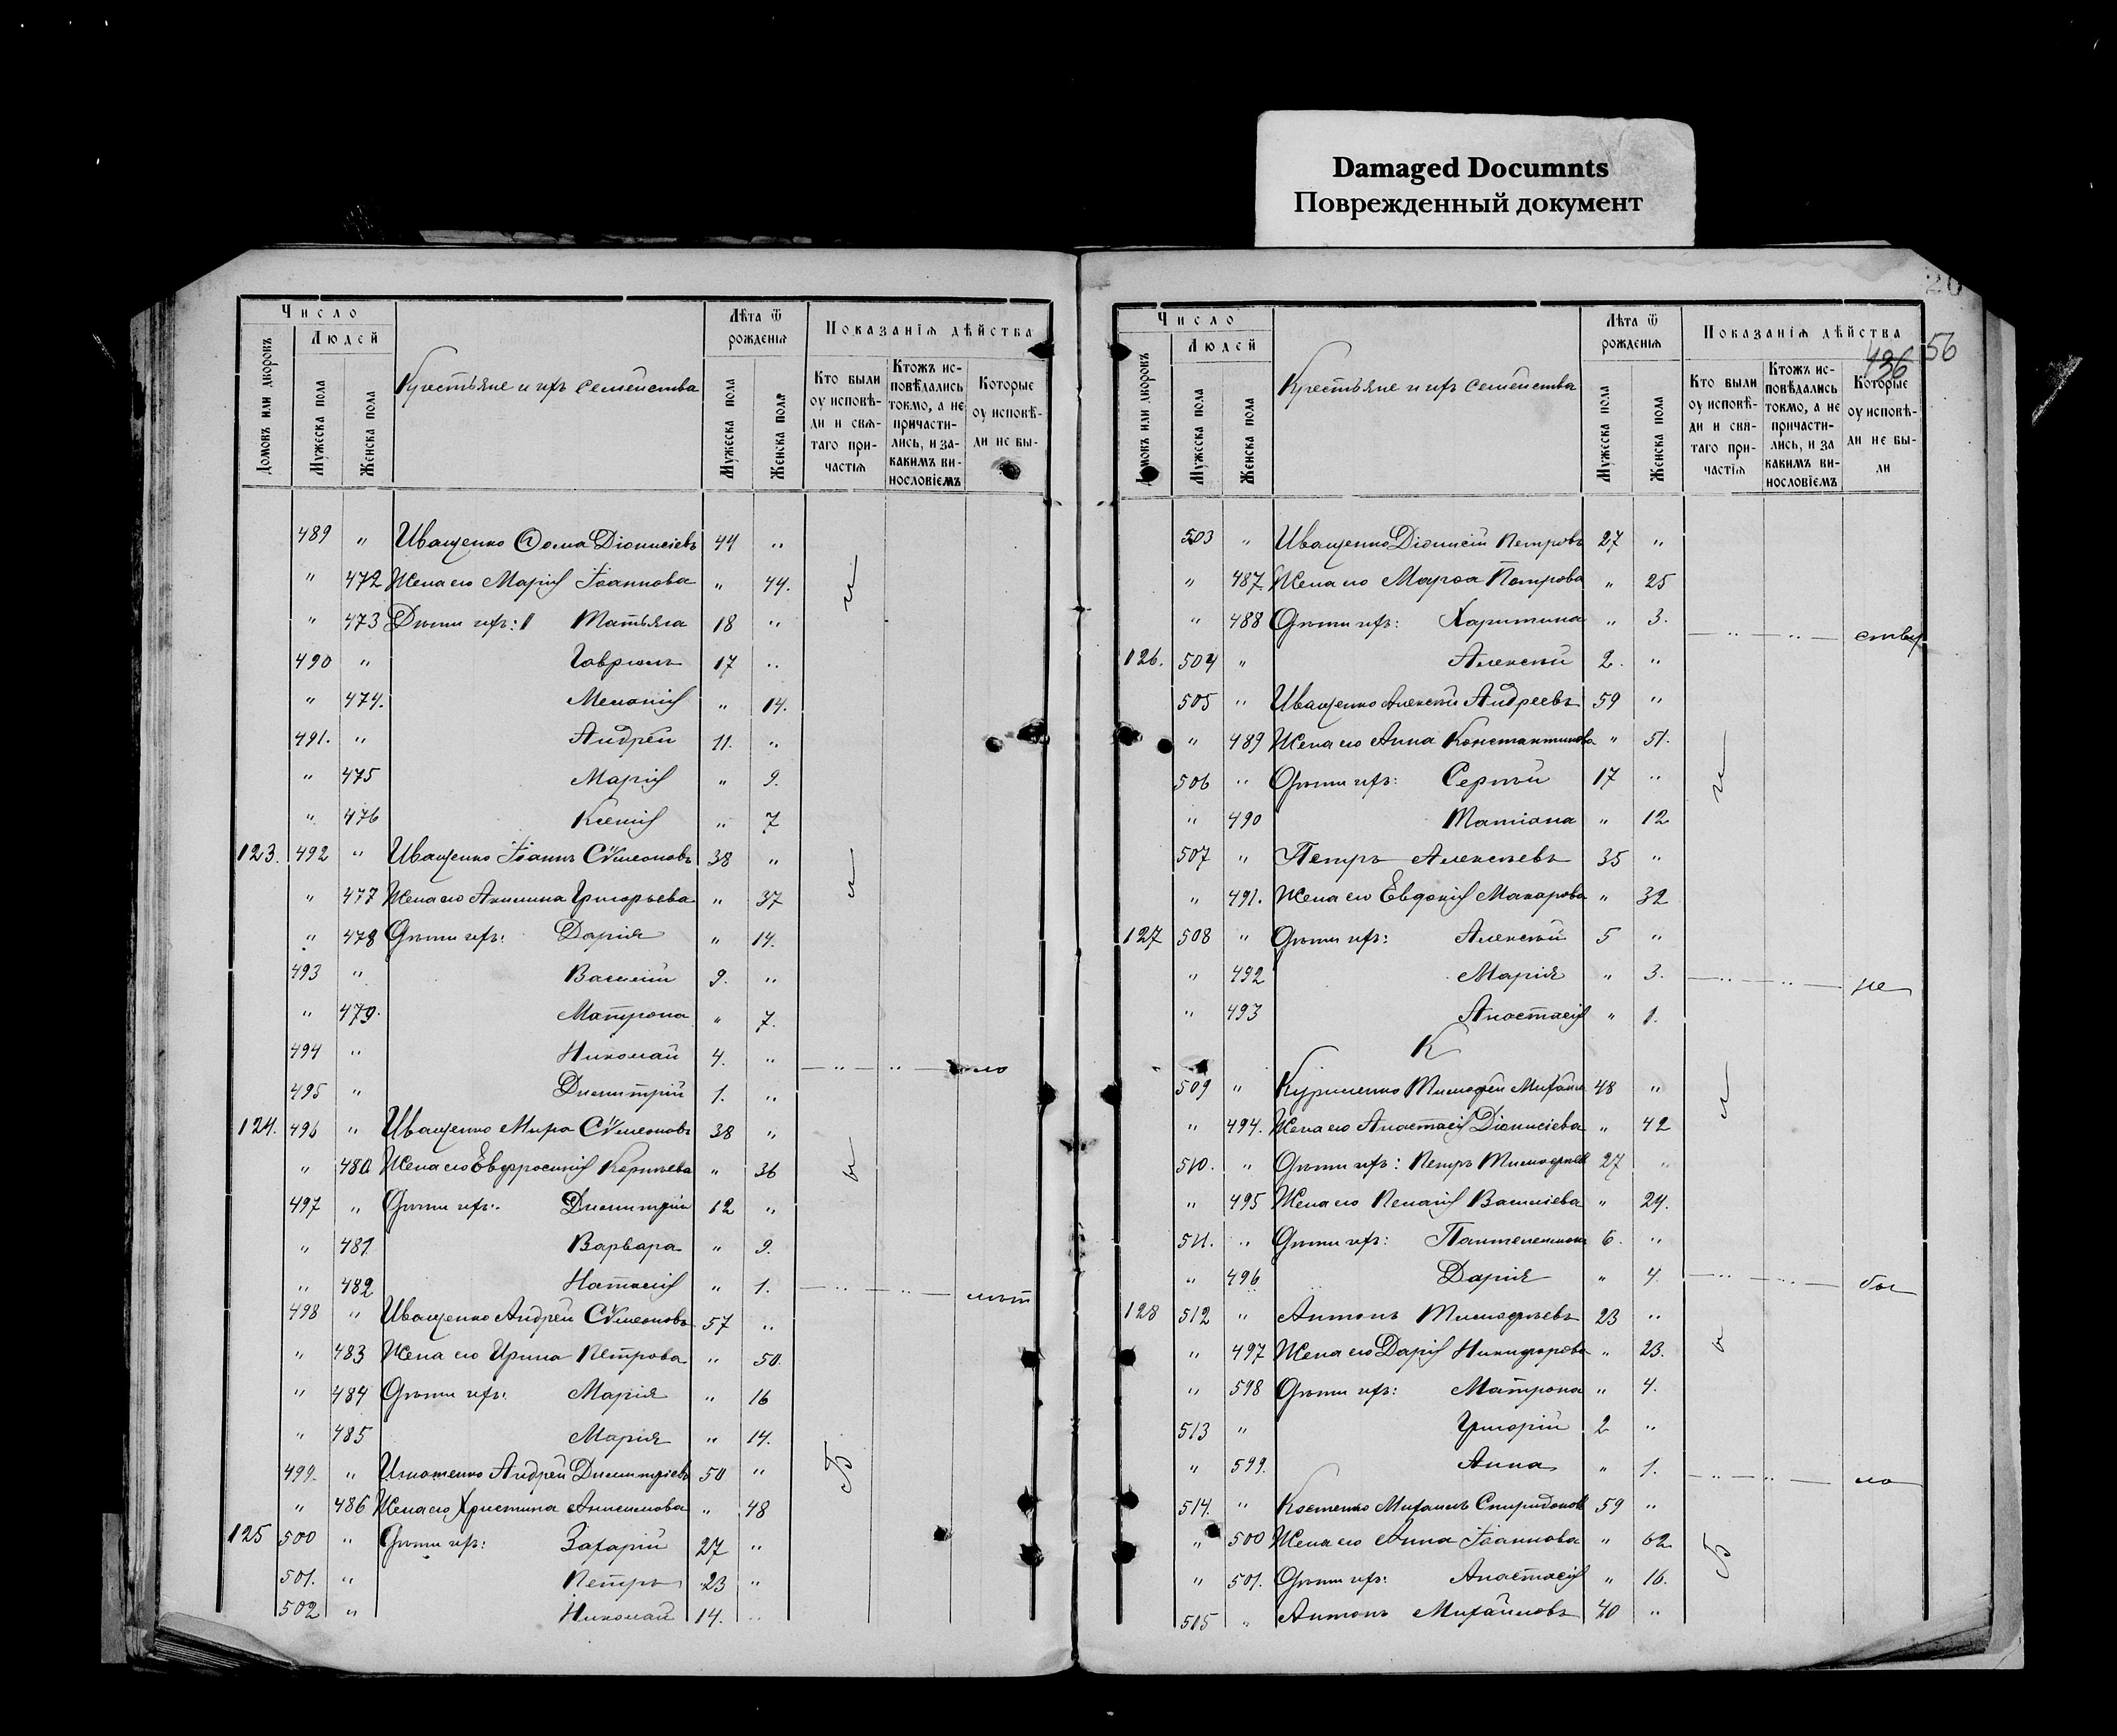 Damaged Documnts
Поврежденный документ
Число
Людей
Домовъ или дворовъ
Мужеска пола
Женска пола
Крестьяне и ихъ семейства
Лѣта ѿ рожденія
Мужеска пола
Женска пола
Показанія дѣйства
Кто были оу исповѣди и святаго причастія
Ктожъ исповѣдались токмо, а не причастились, и за какимъ винословіемъ
Которые оу исповѣди не бы-
489 " Иващенко Ѳома Діонисіевъ 44 "
" 472 Жена его Марія Іоаннова " 44.
" 473 Дѣти ихъ: 18 "
490 " Гавріилъ 17 "
" 474. Меланія " 14.
491. " Андрей 11. "
" 475 Марія " 9.
" 476 Ксенія " 7
123. 492 " Иващенко Іоаннъ Сѵмеоновъ 38 "
" 477 Жена его Акилина Григорьева " 37
" 478 Дѣти ихъ: Дарія " 14.
493 " Василій 9. "
" 479. Матрона " 7.
494 " Николай 4. "
495 " Димитрій 1. "
124. 496 " Иващенко Мира Сѵмеоновъ 38 "
" 480 Жена его Евфросинія Корнѣева " 36
497 " Дѣти ихъ: Димитрій 12 "
" 481 Варвара " 9.
" 482 Наталія " 1.
498 " Иващенко Андрей Сѵмеоновъ 57 "
" 483 Жена его Ирина Петрова " 50.
" 484 Дѣти ихъ: Марія " 16
" 485 Марія " 14.
499. " Игнатенко Андрей Димитріевъ 50 "
" 486 Жена его Христина Анисимова " 48
125 500 " Дѣти ихъ: Захарій 27 "
501. " Петръ 23 "
502 " Николай 14. "
436
56
Число
Людей
Домовъ или дворовъ
Мужеска пола
Женска пола
Крестьяне и ихъ семейства
Лѣта ѿ рожденія
Мужеска пола
Женска пола
Показанія дѣйства
Кто были оу исповѣди и святаго причастія
Ктожъ исповѣдались токмо, а не причастились, и за какимъ винословіемъ
Которые оу исповѣди не были
503 " Иващенко Діонисій Петровъ 27 "
" 487 Жена его Марѳа Петрова " 25
" 488 Дѣти ихъ: Харитина " 3.
126. 504 " Алексѣй 2. "
505 " Иващенко Алексѣй Андреевъ 59 "
" 489 Жена его Анна Константинова " 51.
506 " Дѣти ихъ: Сергѣй 17 "
" 490 Татіана " 12
507 " Петръ Алексѣевъ 35 "
" 491. Жена его Евдокія Макарова " 32
127 508 " Дѣти ихъ: Алексѣй 5 "
" 492 Марія " 3. не
" 493 Анастасія " 1.
К
509 " Куриленко Тимофей Михаил 48 "
" 494. Жена его Анастасія Діонисіева " 42
510. " Дѣти ихъ: Петръ Тимофѣев 27 "
" 495 Жена его Пелагія Василіева " 24.
511. " Дѣти ихъ: Пантелеимонъ 6. "
" 496 Дарія " 4. бы
128 512 " Антонъ Тимофѣевъ 23 "
" 497 Жена его Дарія Никифорова " 23.
" 598 Дѣти ихъ: Матрона " 4.
513 " Григорій 2 "
" 599. Анна " 1. ло
514. " Костенко Михаилъ Спиридонов 59 "
" 500 Жена его Анна Іоаннова " 62
" 501. Дѣти ихъ: Анастасія " 16.
515 " Антонъ Михайловъ 40 "